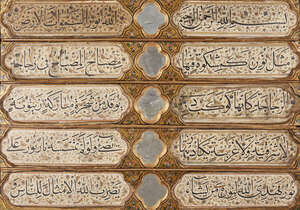 بسم الله الرحمن الرحيم
الله نور السموات والارض
مثل نوره كمشكوة فيها
مصباح المصباح في زجاجة
الزجاجة كانها كوكب دري
يوقد من شجرة مباركة زيتونة
لا شرقية ولا غربية يكاد زيتها
يضيء ولو لم تمسسه نار نور على
نور يهدي الله لنوره من يشاء
ويضرب الله الامثال للناس